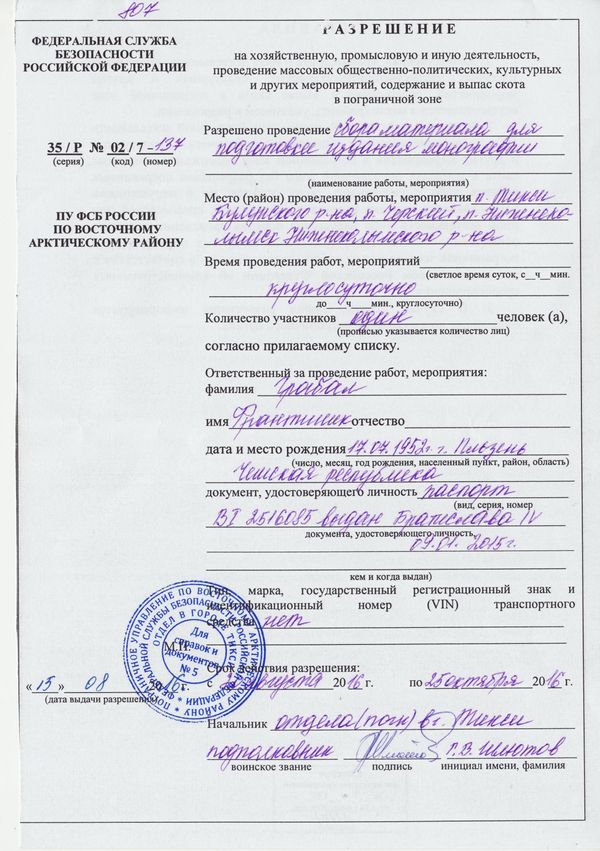 807
РАЗРЕШЕНИЕ
ФЕДЕРАЛЬНАЯ СЛУЖБА
БЕЗОПАСНОСТИ
РОССИЙСКОЙ ФЕДЕРАЦИИ
35 / Р № 02 / 7 - 137
(серия) (код) (номер)
ПУ ФСБ РОССИИ
ПО ВОСТОЧНОМУ
АРКТИЧЕСКОМУ РАЙОНУ
на хозяйственную, промысловую и иную деятельность,
проведение массовых общественно-политических, культурных
и других мероприятий, содержание и выпас скота
в пограничной зоне
Разрешено проведение сбора материала для
подготовке издания монографии
(наименование работы, мероприятия)
Место (район) проведения работы, мероприятия п. Тикси
Булунского р-на, п. Черский, п. Нижнеко-
лымск Нижнеколымского р-на
Время проведения работ, мероприятий
(светлое время суток, с__ч__мин.
круглосуточно
до____ч____мин., круглосуточно)
Количество участников один человек (а),
(прописью указывается количество лиц)
согласно прилагаемому списку.
Ответственный за проведение работ, мероприятия:
фамилия Грабал
имя Франтишек отчество
дата и место рождения 17.07.1952 г. г. Пльзень
(число, месяц, год рождения, населенный пункт, район, область)
Чешская республика
документ, удостоверяющего личность паспорт
(вид, серия, номер
ВТ 2516085 выдан Братислава IV
документа, удостоверяющего личность,
09.01. 2015 г.
кем и когда выдан)
Тип, марка, государственный регистрационный знак и
идентификационный номер (VIN) транспортного
средства нет
М.П.
Срок действия разрешения:
« 15 » 08 августа 2016 г. по 25 октября 2016 г.
(дата выдачи разрешения)
Начальник отдела (погк) в г. Тикси
подполковник Г.В. Шлютов
воинское звание подпись инициал имени, фамилия
ПОГРАНИЧНОЕ УПРАВЛЕНИЕ ПО ВОСТОЧНОМУ АРКТИЧЕСКОМУ РАЙОНУ
ФЕДЕРАЛЬНОЙ СЛУЖБЫ БЕЗОПАСНОСТИ РОССИЙСКОЙ ФЕДЕРАЦИИ
ОТДЕЛ В ГОРОДЕ ТИКСИ
Для
справок и
документов
№ 5